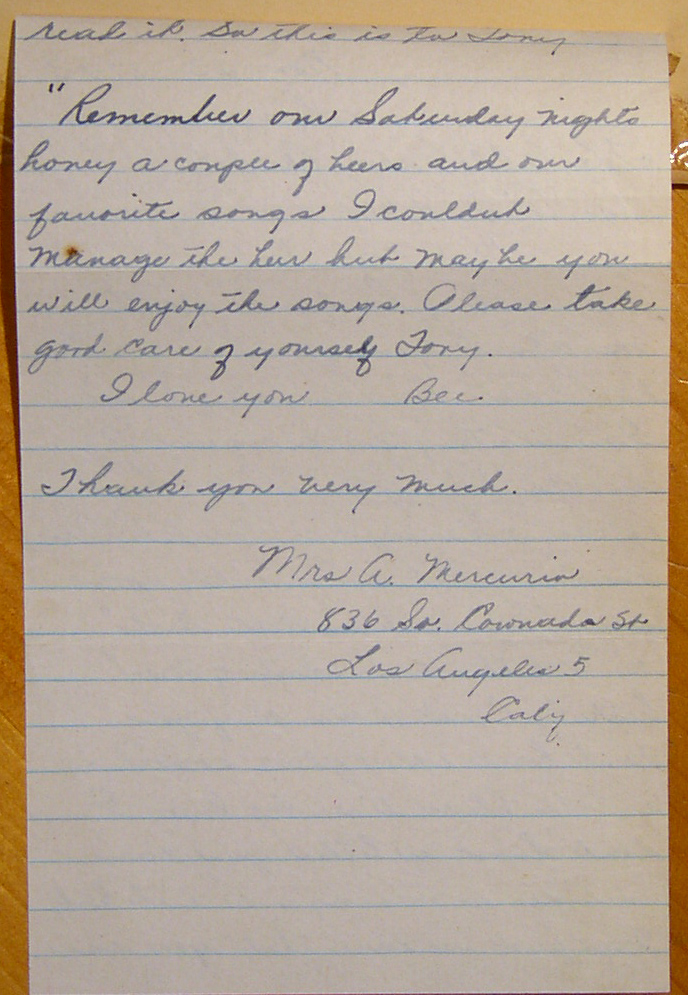 read it. So this is to Tony
"Remember our Saturday nights
honey a couple of beers and our
favorite songs I couldnt
manage the beer but maybe you
will enjoy the songs. Please take
good care of yourself Tony.
I love you Bee.
Thank you very much.
Mrs A. Mercurio
836 So. Coronado St
Los Angeles 5
Calif